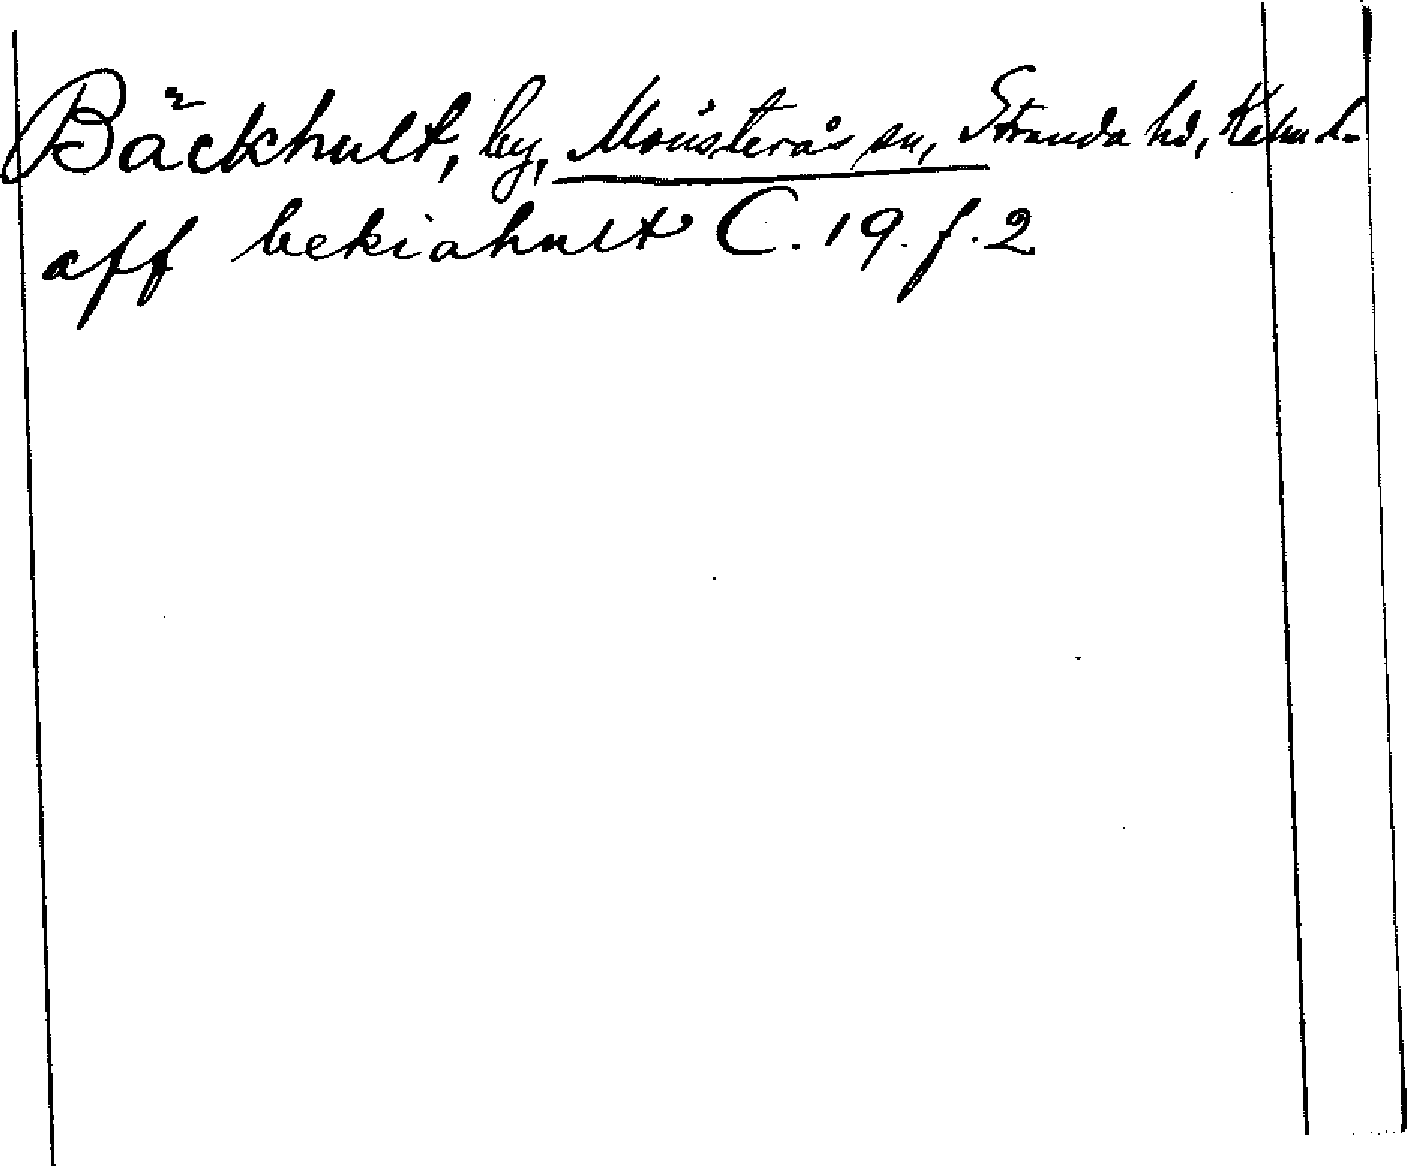 Bäckhult, by, Mönsterås sn, Stranda hd, Kalm l.
aff bekiahult C. 19. f. 2